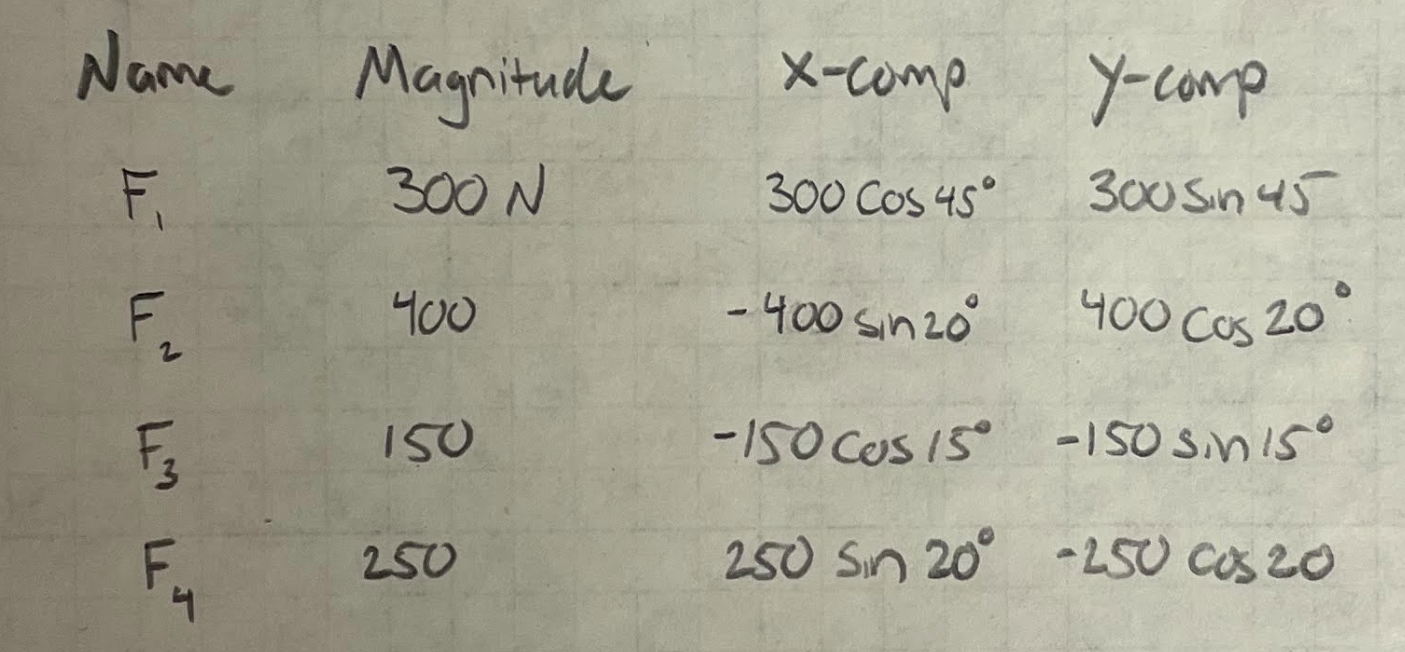 Name Magnitude x-comp y-comp
F₁ 300 N 300 cos 45° 300 sin 45
F₂ 400 -400 sin 20° 400 cos 20°
F₃ 150 -150 cos 15° -150 sin 15°
F₄ 250 250 sin 20° -250 cos 20